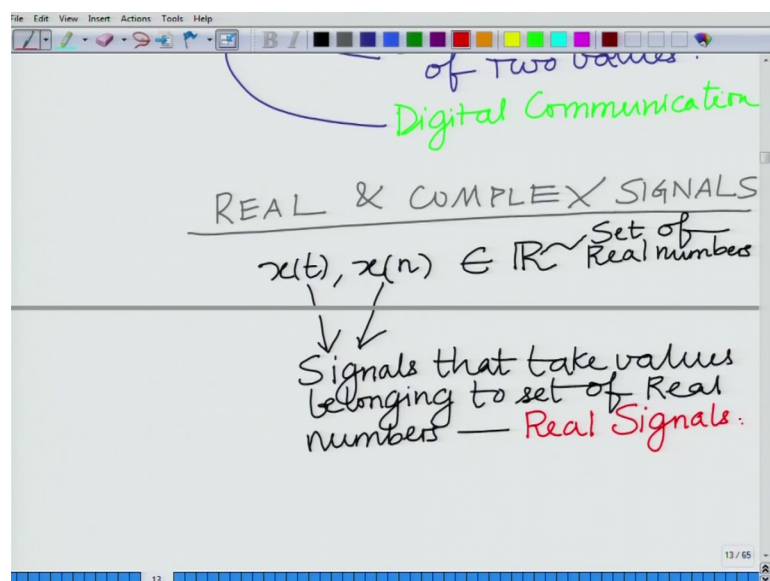 File Edit View Insert Actions Tools Help
B I
of Two values.
Digital Communication
REAL & COMPLEX SIGNALS
x(t), x(n) ∈ ℝ ~ Set of
Real numbers
Signals that take values
belonging to set of Real
numbers — Real Signals.
13 / 65
13